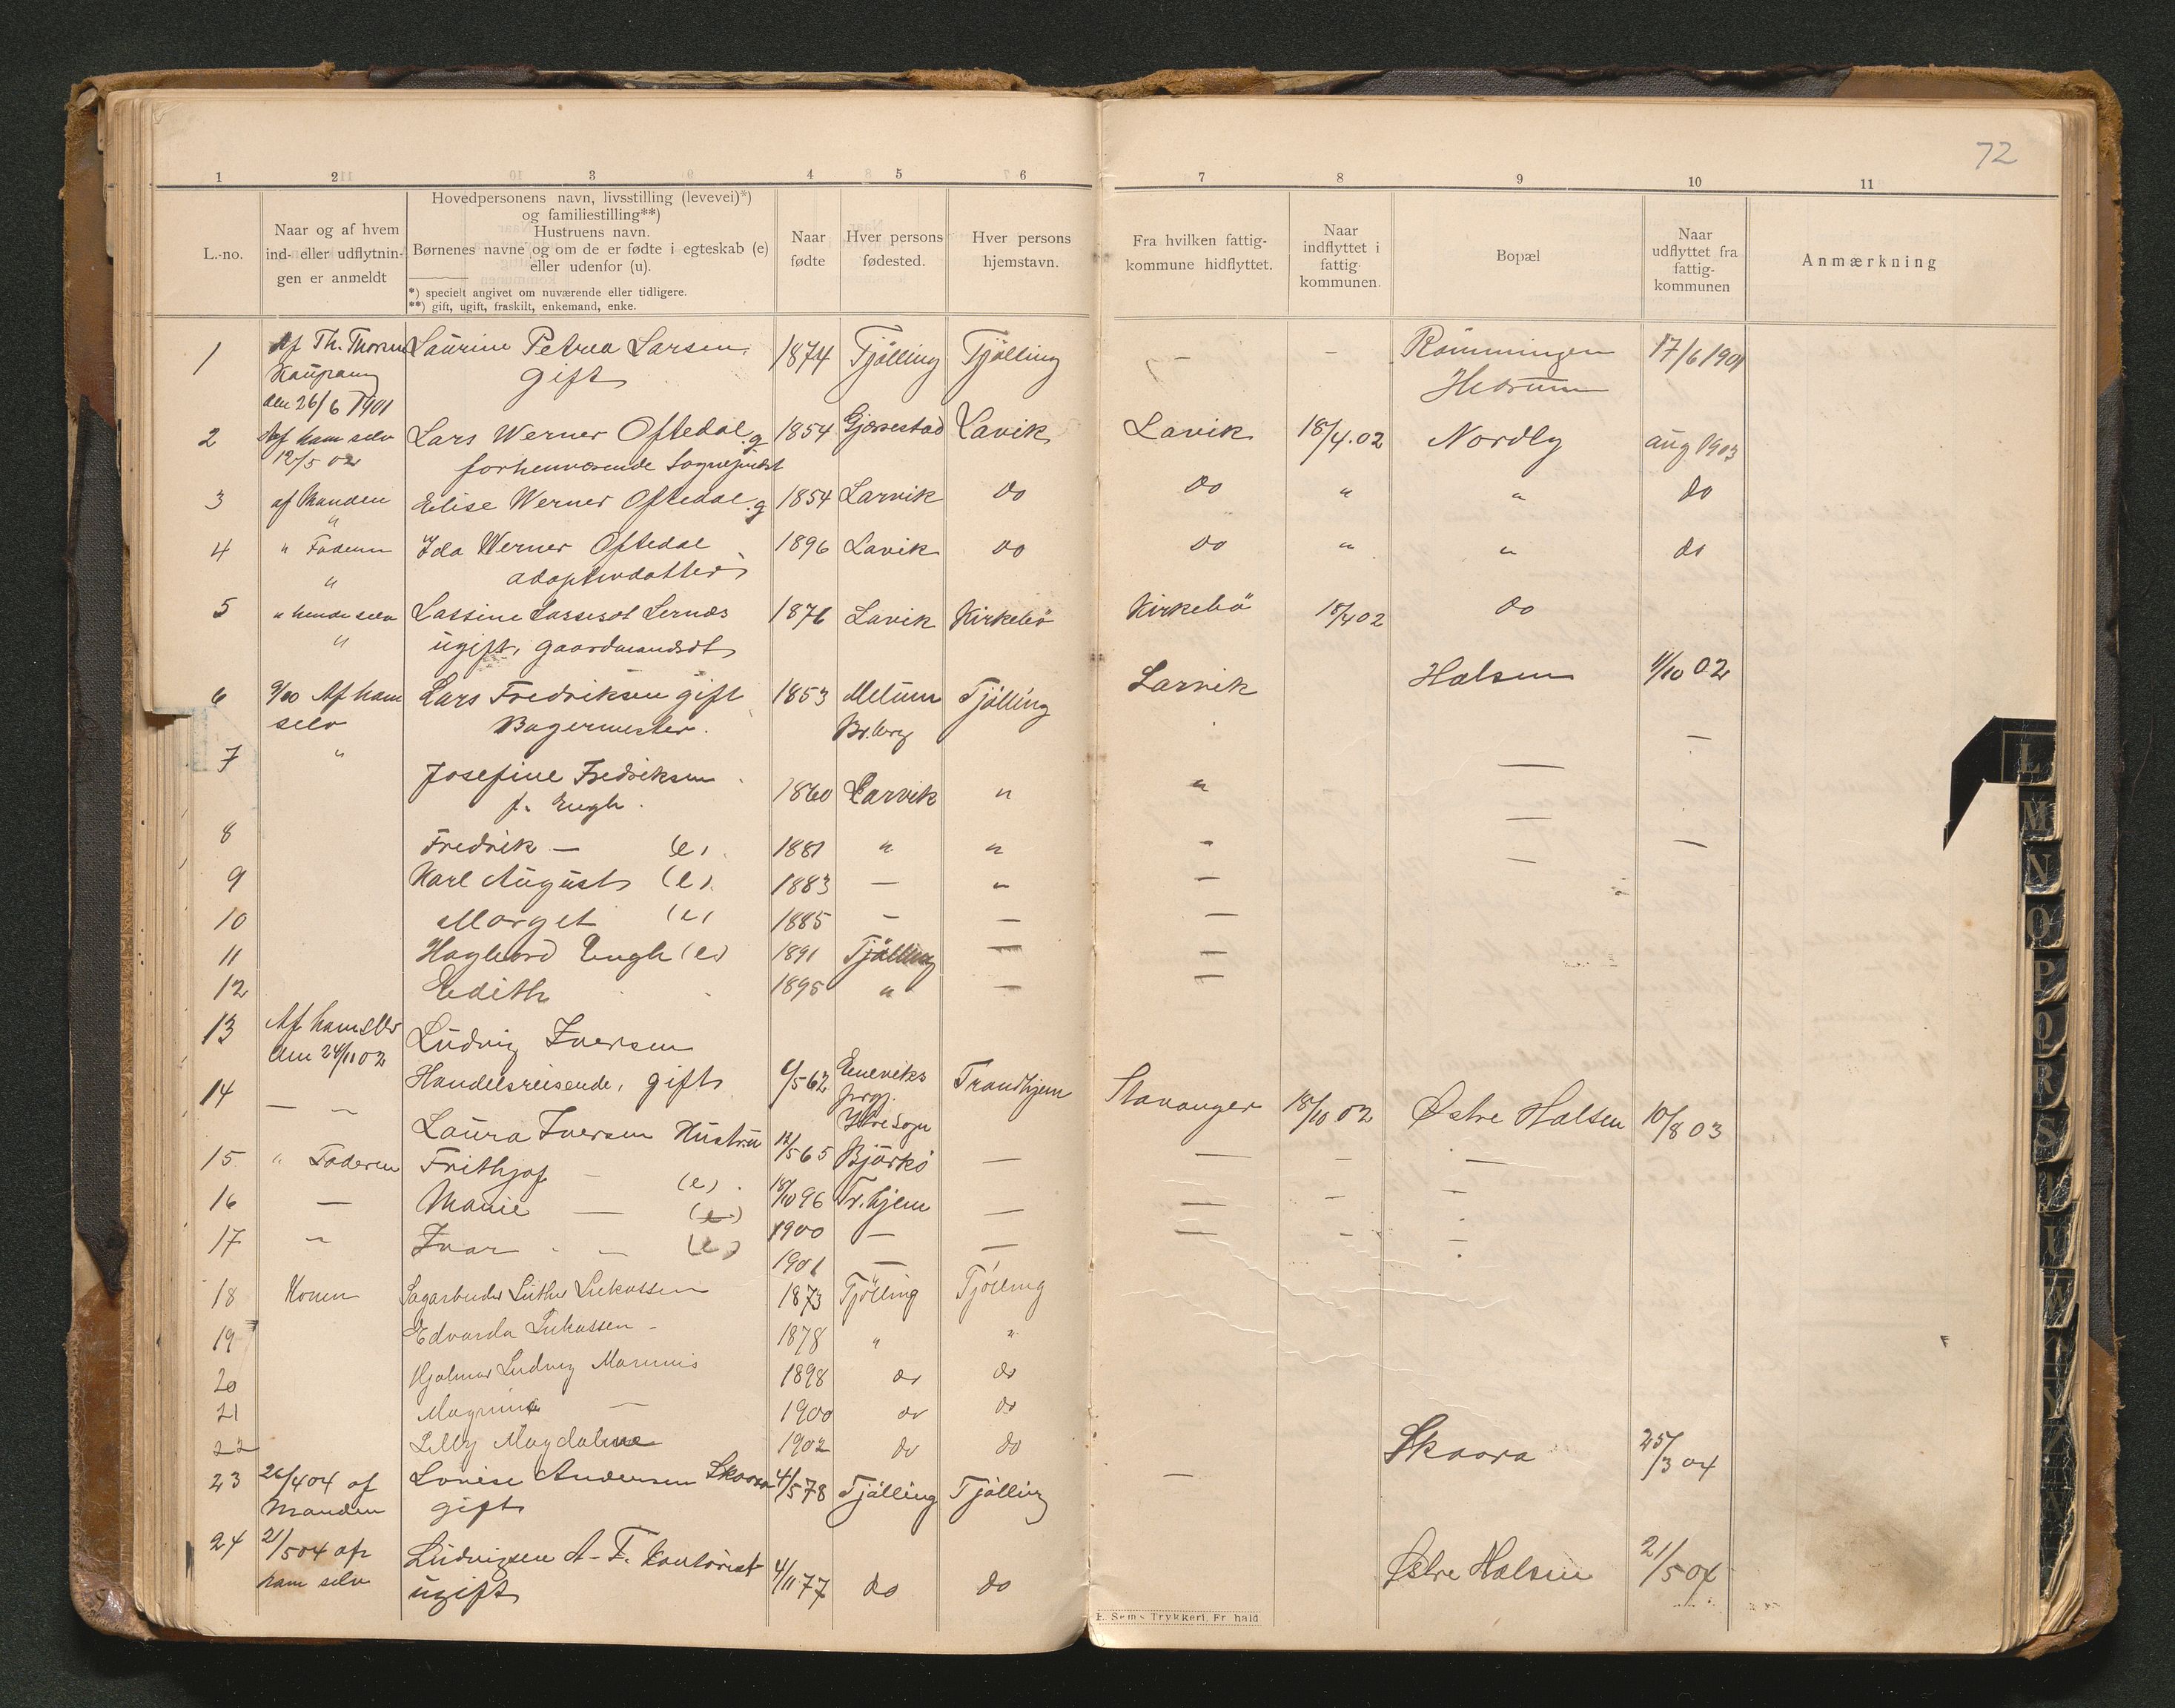 72
1 2 3 4 5 6 7 8 9 10 11
L.-no.
Naar og af hvem
ind- eller udflytnin-
gen er anmeldt
Hovedpersonens navn, livsstilling (levevei)*)
og familiestilling**)
Hustruens navn.
Børnenes navne og om de er fødte i egteskab (e)
eller udenfor (u).
*) specielt angivet om nuværende eller tidligere.
**) gift, ugift, fraskilt, enkemand, enke.
Naar
fødte
Hver persons
fødested.
Hver persons
hjemstavn.
Fra hvilken fattig-
kommune hidflyttet.
Naar
indflyttet i
fattig-
kommunen.
Bopæl
Naar
udflyttet fra
fattig-
kommunen
Anmærkning
1 Af Th. Laurine Petrea Larsen, 1874 Tjölling Tjölling — — Römmingen 17/6 1901
Kaupang gift Hedrum
den 26/6 1901
2 Af ham selv Lars Werner Oftedal g 1854 Gjerrestad Lavik Lavik 18/4.02 Nordby aug 1903
12/5 02 forhenværende
3 af Manden Elise Werner Oftedal g 1854 Larvik do do " " do
"
4 " Faderen Ida Werner Oftedal 1896 Lavik do do " " do
" adoptivdatter
5 " hende selv Lassine Lassesdt Lernæs 1876 Lavik Kirkebö Kirkebö 18/4 02 do
" ugift, gaardmandsdt
6 9/10 Af ham Lars Fredriksen gift 1853 Melum Tjölling Larvik Halsen 9/10 02
selv Bagermester. Br.berg
7 " Josefine Fredriksen 1860 Larvik " " — —
f. Engh.
8 Fredrik — (e) 1881 " " - — —
9 Karl August (e) 1883 — " — —
10 Marget (e) 1885 - — —
11 Hagbard Engh (e) 1891 Tjölling — —
12 Edith 1895 " — —
13 Af ham selv Ludvig Iversen
den 24/11 02 Handelsreisende, gift 6/5 62 Eneviks Trondhjem Stavanger 18/10 02 Østre Halsen 10/8 03
prgj.
Ytre Sogn
14 — " Laura Iversen Hustru 12/5 65 Björkö — — - —
15 " Faderen Frithjof — (e) 18/10 96 Tr.hjem — — - -
16 — Marie — (e) 1900 — — — - -
17 " Ivar - — (e) 1901 —
18 Konen Sagarbeider Luther Lukassen 1873 Tjölling Tjölling
19 Edvarda Lukassen - 1878 " "
20 Hjalmar Ludvig 1898 do do
21 Magnus — 1900 do do
22 Lilly Magdalene 1902 do do
23 26/4 04 af Lovise Andersen Skaara 4/5 78 Tjölling Tjölling — Skaara 25/3 04
Manden gift
24 21/5 04 af Ludvigsen A. F. Kontorist 4/11 77 do do Østre Halsen 21/5 04
ham selv ugift
E. Sems Trykkeri, Fr.hald
L
M
N
O
P
Q
R
S
T
U
W
Y
Z